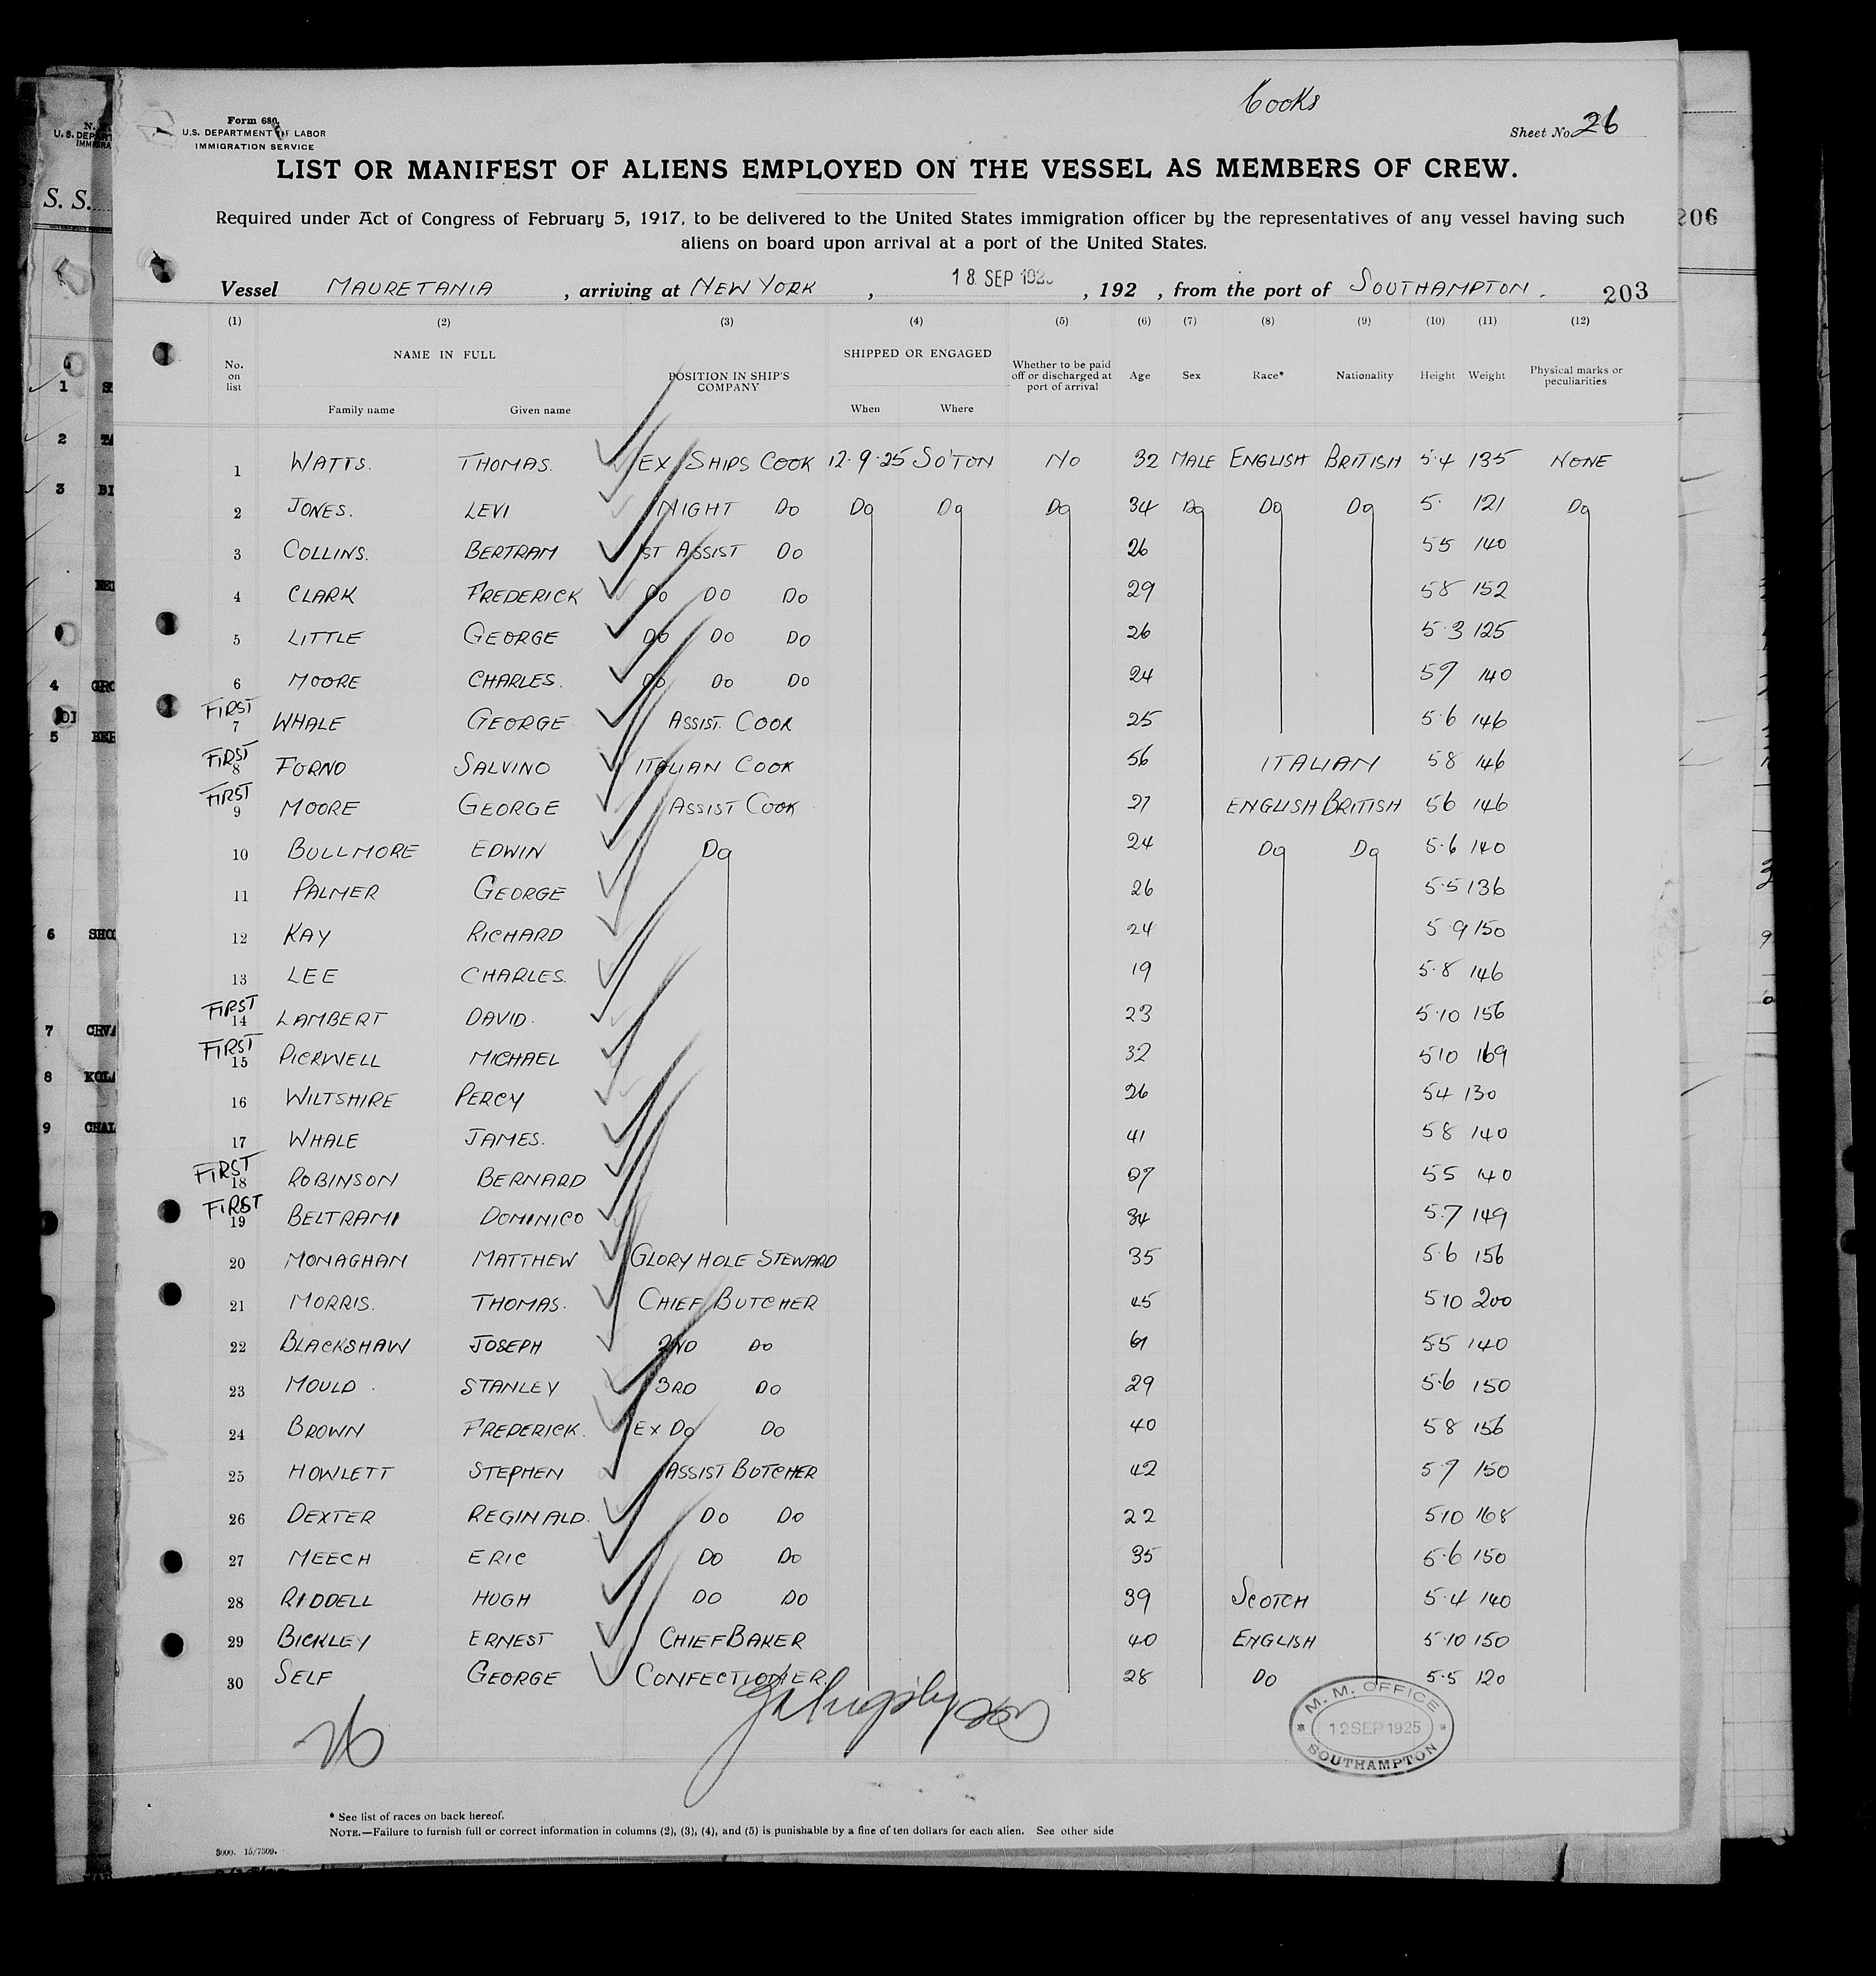 Cooks
Form 680
U.S. DEPARTMENT OF LABOR
IMMIGRATION SERVICE
Sheet No. 26
LIST OR MANIFEST OF ALIENS EMPLOYED ON THE VESSEL AS MEMBERS OF CREW.
Required under Act of Congress of February 5, 1917, to be delivered to the United States immigration officer by the representatives of any vessel having such
aliens on board upon arrival at a port of the United States.
Vessel MAURETANIA, arriving at NEW YORK, 18 SEP 192 , 192 , from the port of SOUTHAMPTON. 203
(1) (2) (3) (4) (5) (6) (7) (8) (9) (10) (11) (12)
No. on list NAME IN FULL Family name Given name POSITION IN SHIP'S COMPANY SHIPPED OR ENGAGED When Where Whether to be paid off or discharged at port of arrival Age Sex Race* Nationality Height Weight Physical marks or peculiarities
1 WATTS. THOMAS. EX SHIPS COOK 12·9·25 SO'TON NO 32 MALE ENGLISH BRITISH 5·4 135 NONE
2 JONES. LEVI NIGHT DO DO DO DO 34 DO DO DO 5· 121 DO
3 COLLINS. BERTRAM 1ST ASSIST DO 26 55 140
4 CLARK FREDERICK DO DO DO 29 58 152
5 LITTLE GEORGE DO DO DO 26 5·3 125
6 MOORE CHARLES. DO DO DO 24 59 140
FIRST 7 WHALE GEORGE ASSIST. COOK 25 5·6 146
FIRST 8 FORNO SALVINO ITALIAN COOK 56 ITALIAN 58 146
FIRST 9 MOORE GEORGE ASSIST COOK 27 ENGLISH BRITISH 56 146
10 BULLMORE EDWIN DO 24 DO DO 5·6 140
11 PALMER GEORGE 26 5·5 136
12 KAY RICHARD 24 5 9 150
13 LEE CHARLES. 19 5·8 146
FIRST 14 LAMBERT DAVID. 23 5·10 156
FIRST 15 PICKWELL MICHAEL 32 510 169
16 WILTSHIRE PERCY 26 54 130
17 WHALE JAMES. 41 58 140
FIRST 18 ROBINSON BERNARD 27 55 140
FIRST 19 BELTRAMI DOMINICO 34 5·7 149
20 MONAGHAN MATTHEW GLORY HOLE STEWARD 35 5·6 156
21 MORRIS. THOMAS. CHIEF BUTCHER 45 5·10 200
22 BLACKSHAW JOSEPH 2ND DO 61 5·5 140
23 MOULD. STANLEY 3RD DO 29 5·6 150
24 BROWN FREDERICK. EX DO DO 40 58 156
25 HOWLETT STEPHEN ASSIST BUTCHER 42 5·9 150
26 DEXTER REGINALD. DO DO 22 510 168
27 MEECH ERIC DO DO 35 5·6 150
28 RIDDELL HUGH DO DO 39 SCOTCH 5·4 140
29 BICKLEY ERNEST CHIEF BAKER 40 ENGLISH 5·10 150
30 SELF GEORGE CONFECTIONER. 28 DO 5·5 120
26
M. M. OFFICE
12 SEP 1925
SOUTHAMPTON
* See list of races on back hereof.
NOTE.—Failure to furnish full or correct information in columns (2), (3), (4), and (5) is punishable by a fine of ten dollars for each alien. See other side
206
S. S.